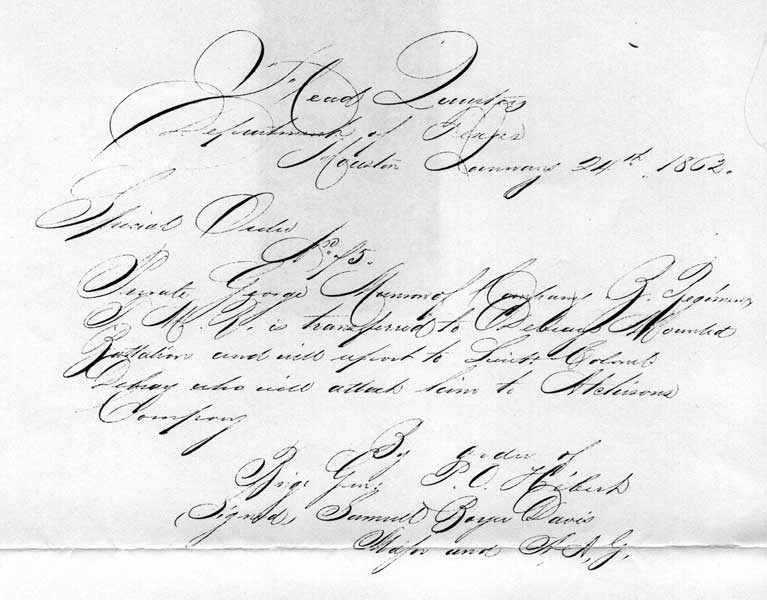 Head Quarters
Department of Texas
Houston January 24th. 1862.
Special Order
No 75.
Private George Company B. Regiment
T. M. R. is transferred to Debray's Mounted
Battalion and will report to Lieut. Colonel
Debray who will attach him to Atchisons
Company
By order of
Brig. Gen: P. O. Hebert
(Signed) Samuel Boyer Davis
Major and A. A. G.